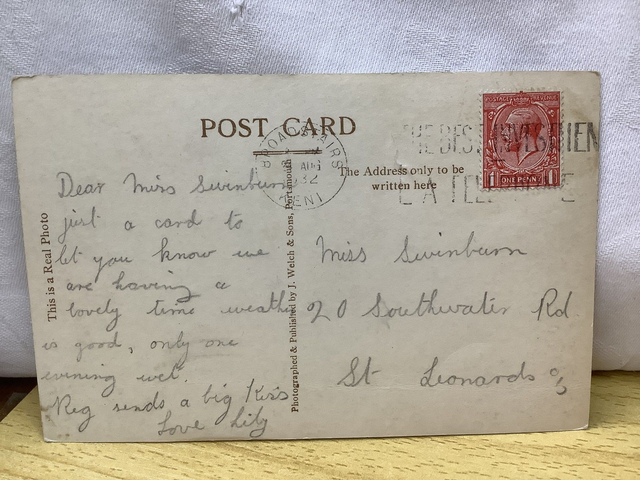 POST CARD
BROADSTAIRS
AUG
32
KENT
THE BEST INVESTMEN
A TELEPHONE
POSTAGE REVENUE
1 ONE PENNY 1
The Address only to be
written here
This is a Real Photo
Photographed & Published by J. Welch & Sons, Portsmouth
Dear Miss Swinburn
just a card to
let you know we
are having a
lovely time weathe
is good, only one
evening wet.
Reg sends a big Kiss
Love Lily
Miss Swinburn
20 Southwater Rd
St Leonards